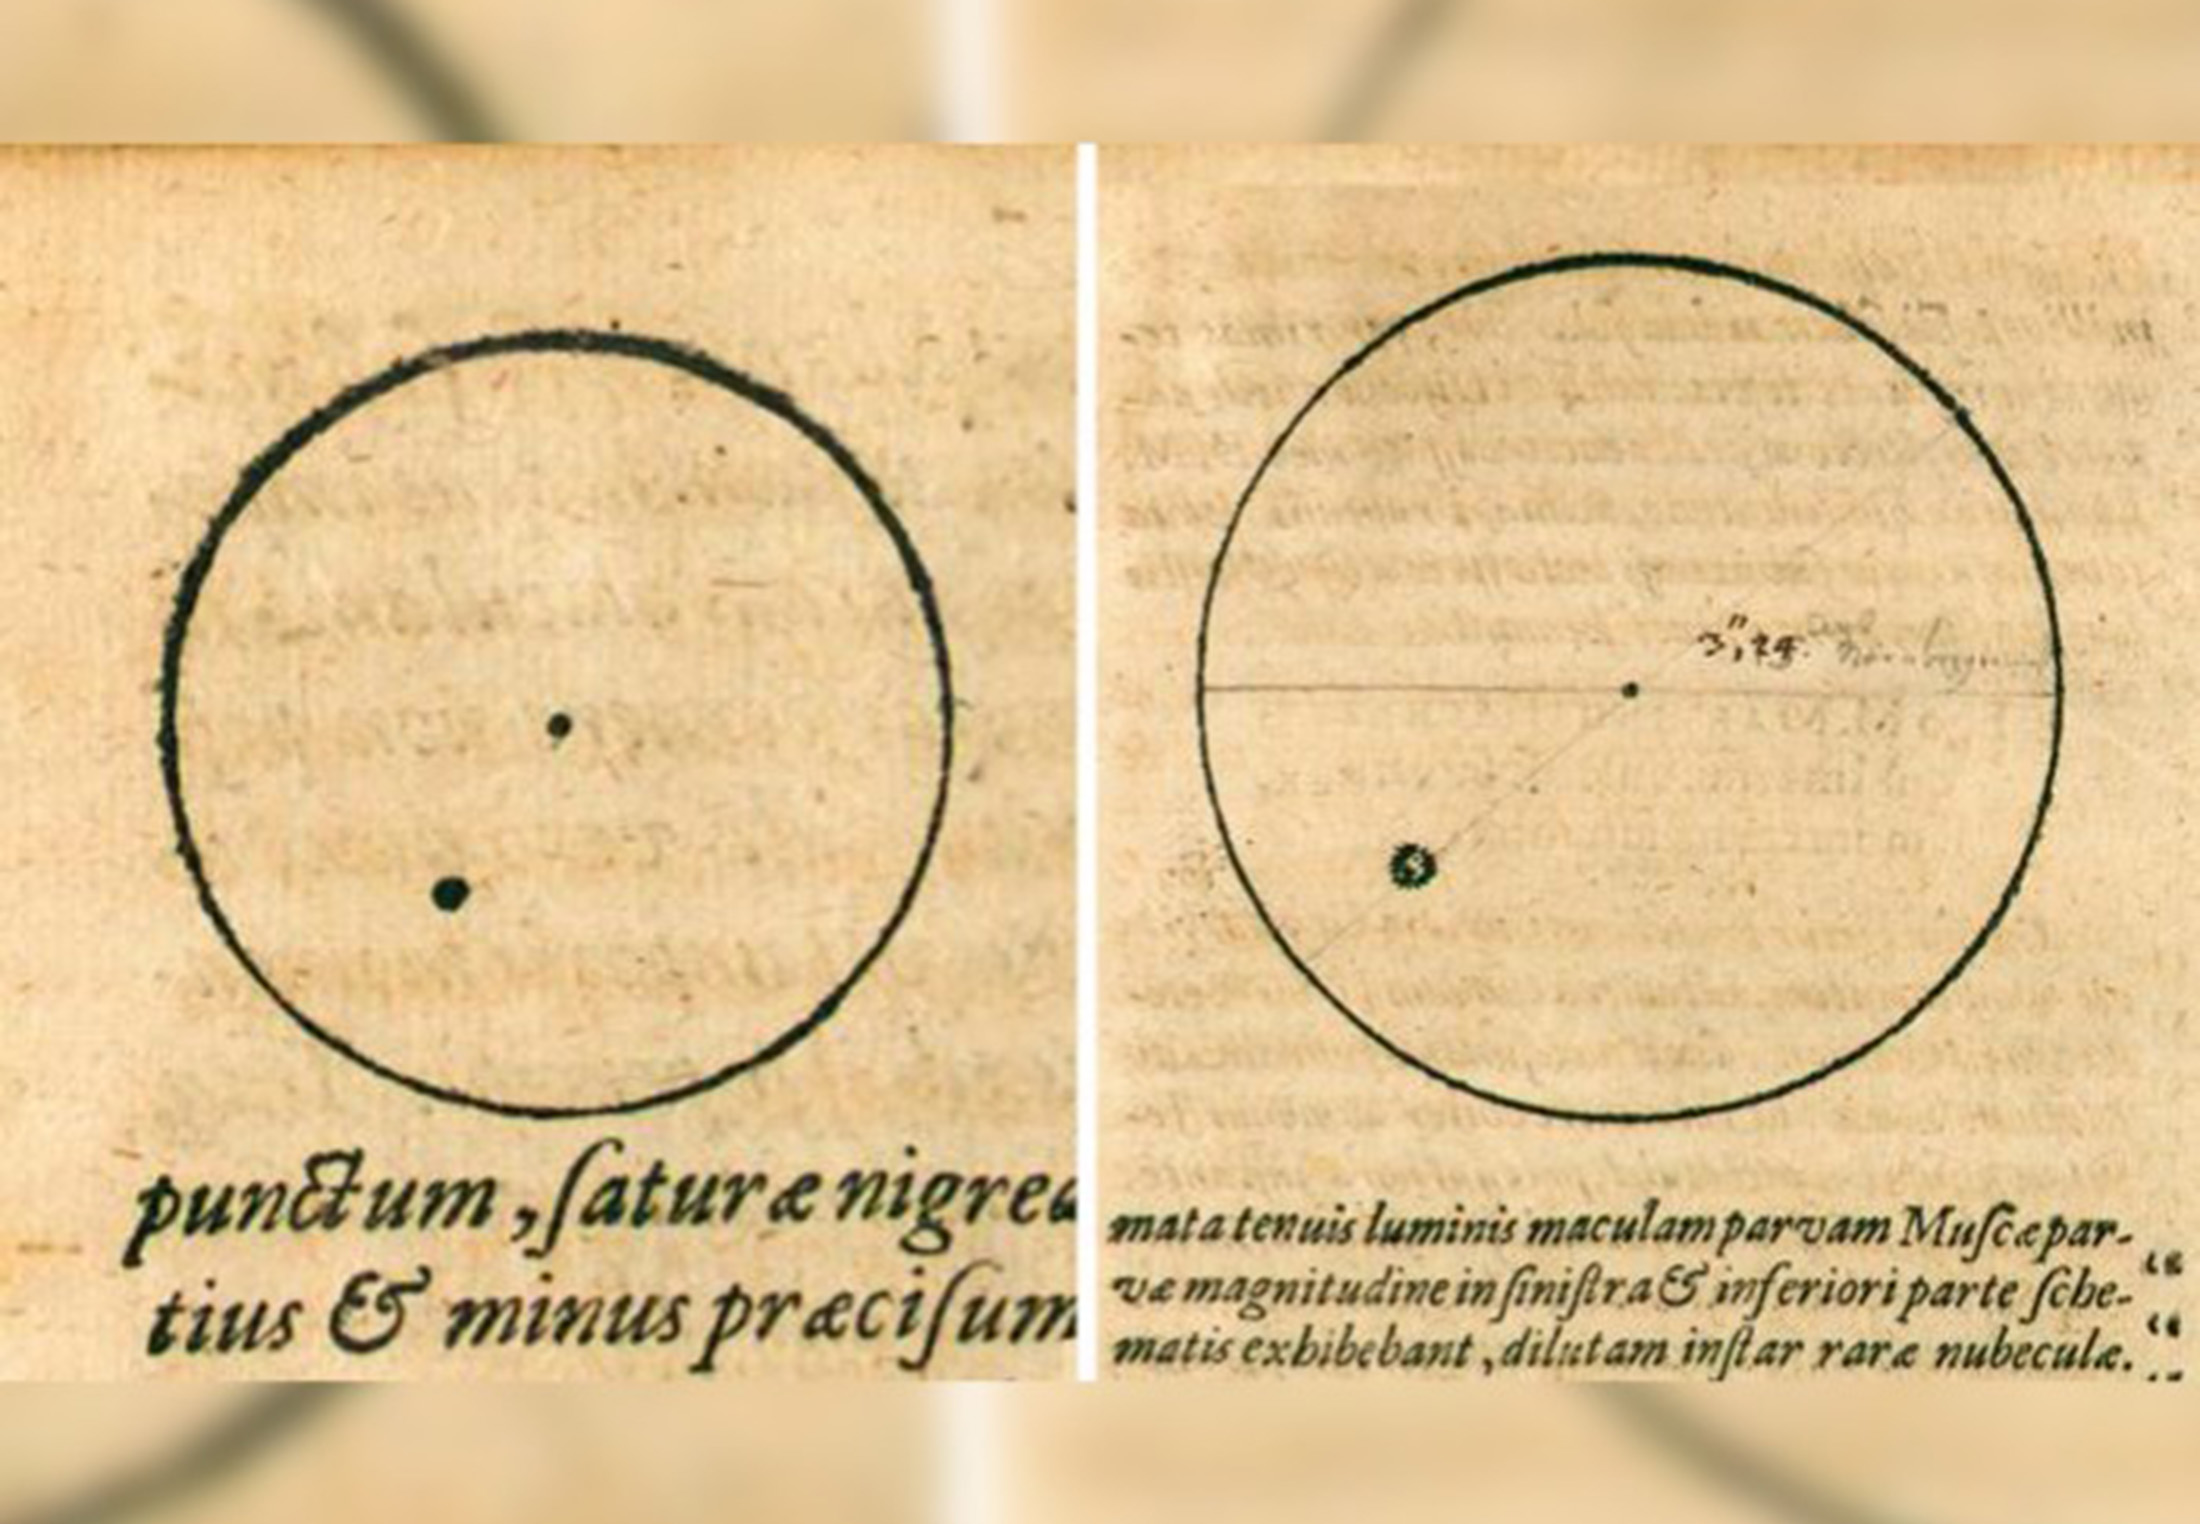 punctum, ſaturæ nigred
tius & minus præciſum
mata tenuis luminis maculam parvam Muſcæ par-
væ magnitudine in ſiniſtra & inferiori parte ſche-
matis exhibebant, dilutam inſtar raræ nubeculæ.